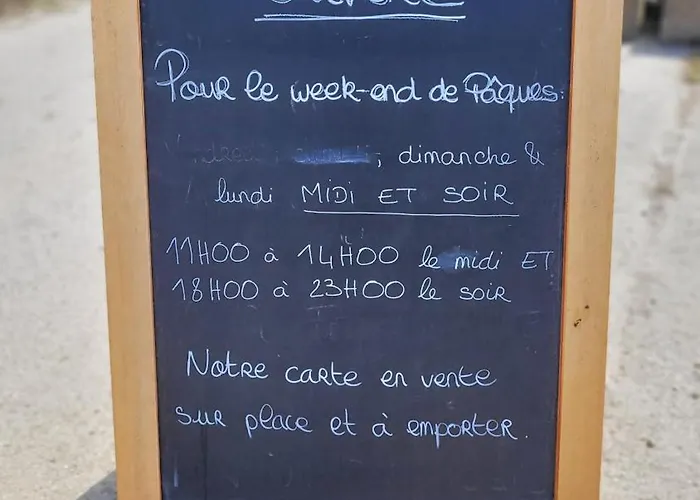 Pour le week-end de Pâques:
, dimanche &
lundi MIDI ET SOIR
11H00 à 14H00 le midi ET
18H00 à 23H00 le soir
Notre carte en vente
sur place et à emporter.